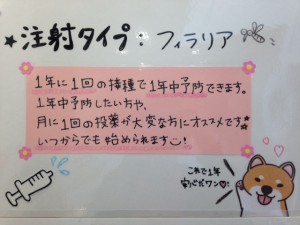 ★注射タイプ：フィラリア
1年に1回の接種で1年中予防できます。
1年中予防したい方や、
月に1回の投薬が大変な方にオススメです★
いつからでも始められます！
これで1年
安心だワン♡！